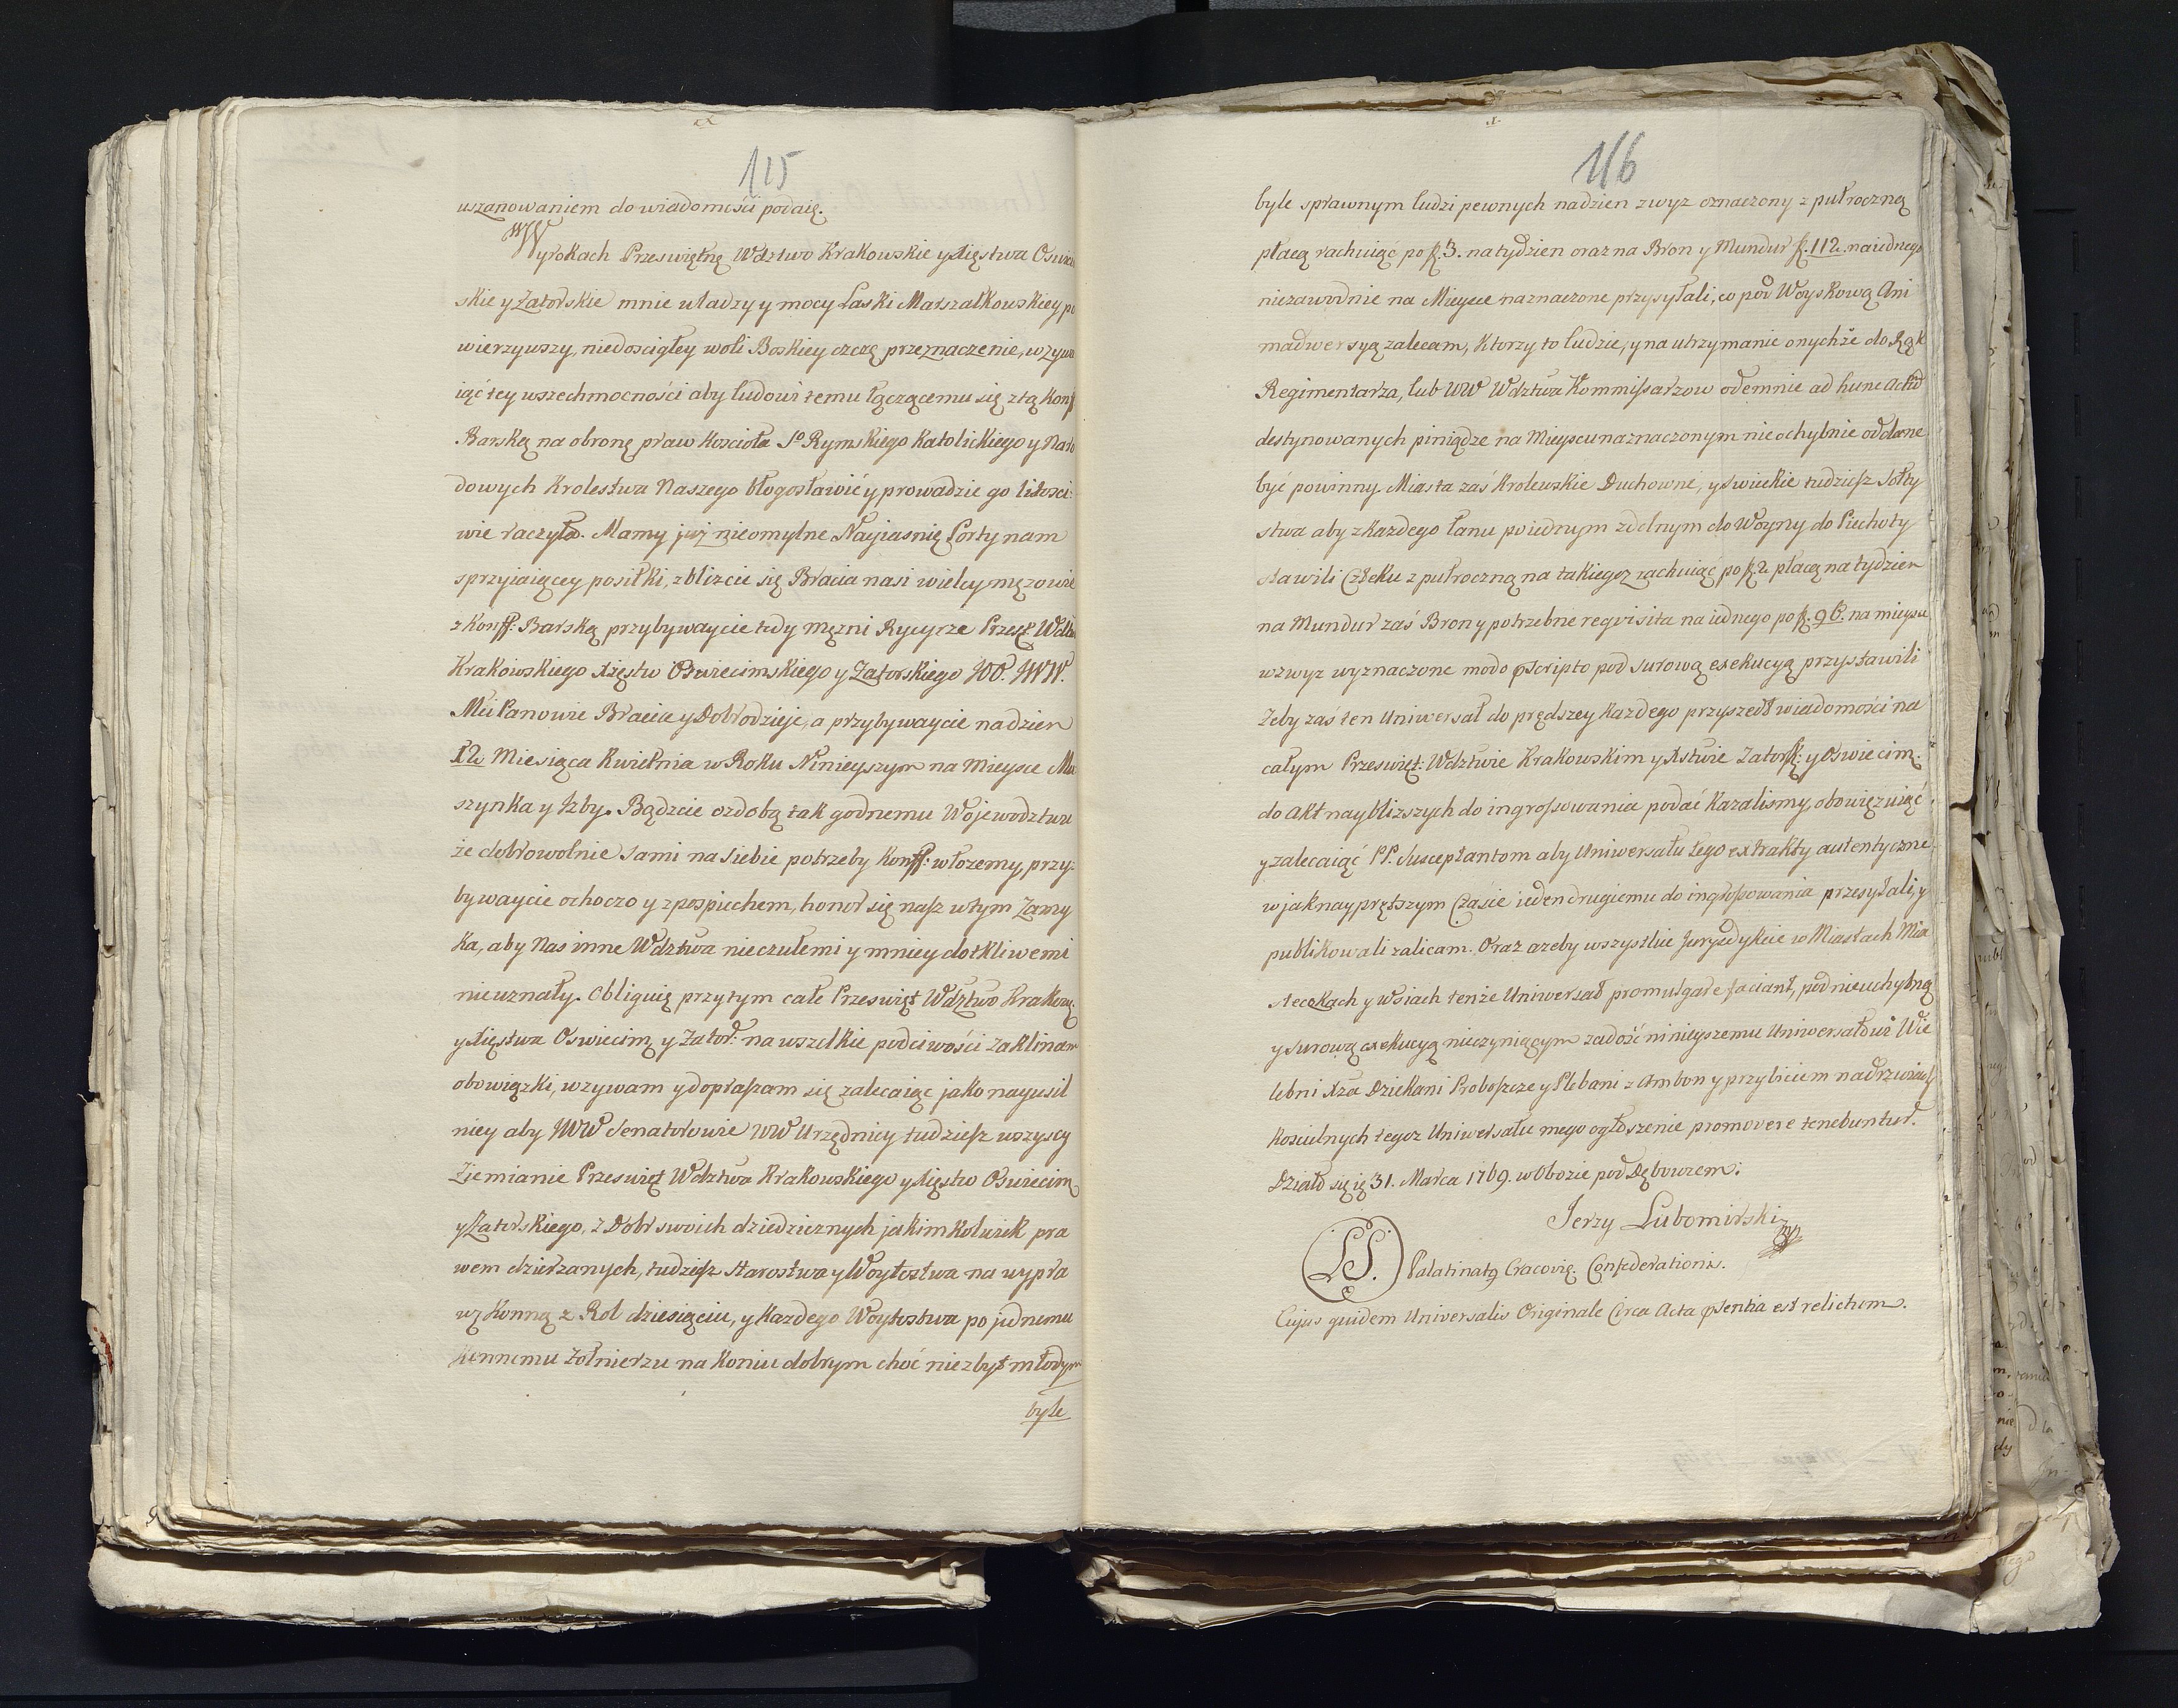 115
uszanowaniem do wiadomości podaię.
Wyrokach Przeswiętnę Wdztwo Krakowskie y Xięstwa Oswie
skie y Zatorskie mnie władzy y mocy Laski Marszałkowskiey po
wierzywszy, niedoscigłey woli Boskiey czczę przeznaczenie, wzywa
iąc tey wszechmocności aby ludowi temu łączącemu się z tą Konf
Barską na obronę praw Kościoła So Rymskiego Katolickiego y Naro
dowych Krolestwa Naszego błogosławić y prowadzic go litosci:
wie raczyła. Mamy już nieomylne Nayiasnię Porty nam
sprzyiaiącey posiłki, zblizcie się Bracia nasi wielcy mężowie
z Konff: Barską przybywaycie tedy mężni Rycyrze Przesz: Wdztw
Krakowskiego Xięstw Oswiecimskiego y Zatorskiego JOO. JWW.
Mci Panowie Bracia y Dobrodzieje, a przybywaycie na dzien
12 Miesiąca Kwietnia w Roku Ninieyszym na Mieysce Mu
szynka y Izby. Bądzcie ozdobą tak godnemu Wojewodztwu
że dobrowolnie sami na siebie potrzeby Konff: włozemy, przy:
bywaycie ochoczo y z pospiechem, honor się nasz w tym Zamy
Ka, aby Nas inne Wdztwa nieczułemi y mniey dotkliwemi
nieuznały. Obliguię przytym całe Przeswięt Wdztwo Krakow:
y Xięstwa Oswiecim y Zator: na wszelkie podciwości zaklinam
obowiązki, wzywam y dopraszam się zalecaiąc jako nayusil
niey aby JWW Senatorowie WW Urzędnicy tudziesz wszyscy
Ziemianie Przeswięt Wdztwa Krakowskiego y Xięstw Oswiecim
y Zatorskiego, z Dobr swoich dziedzicznych jakimkolwiek pra
wem dzierzanych, tudziesz Starostwa y Woytostwa na wypra
wę Konną z Rol dziesięciu, y Kazdego Woytostwa po jednemu
Konnemu Zołnierzu na Koniu dobrym choć niezbyt młodym
byle
116
byle sprawnym ludzi pewnych na dzien zwyz oznaczony z pułroczną
płacą rachuiąc po f. 3. na tydzien oraz na Bron y Mundur f. 112. na iednego
niezawodnie na Mieysce naznaczone przysyłali, co pod Woyskową Ani
madwersyą zalecam, Ktorzy to ludzie, y na utrzymanie onychże do Rąk
Regimentarza, lub WW Wdztwa Kommissarzow odemnie ad hunc Actū
destynowanych piniądze na Mieyscu naznaczonym nieochybnie oddane
być powinny. Miasta zaś Krolewskie Duchowne, y swieckie tudziesz Sołty
stwa aby z Kazdego łanu po iednym zdolnym do Woyny do Piechoty
stawili Człeku z pułroczną na takiegoz rachuiąc po f. 2 płacą na tydzien
na Mundur zaś Bron y potrzebne reqvisita na iednego po f. 96. na mieysce
wzwyz wyznaczone modo pscripto pod surową exekucyą przystawili
Zeby zaś ten Uniwersał do prędszey Kazdego przyszedł wiadomości na
całym Przeswięt: Wdztwie Krakowskim y Xstwie Zatorsk: y Oswiecim:
do akt nayblizszych do ingrossowania podać Kazalismy, obowięzuiąc
y zalecaiąc PP. Susceptantom aby Uniwersału tego extrakty autentyczne
w jak nayprętszym Czasie ieden drugiemu do ingrossowania przesyłali, y
publikowali zalicam. Oraz azeby wszystkie Jurysdykcie w Miastach Mia
steczkach y wsiach tenże Uniwersał promulgare faciant, pod nieuchybną
y surową exekucyą nieczyniącym zadość ninieyszemu Uniwersałowi Wie
lebni Xza Dziekani Proboszcze y Plebani z Ambon y przybiciem na drzwiach
Koscielnych tegoz Uniwersału mego ogłoszenie promovere tenebuntur.
Działo się 31. Marca 1769. w Obozie pod Dębowcem:
Jerzy Lubomirski
LS. Palatinatq Cracovię. Confederationis.
Cujus quidem Universalis Originale Circa Acta psentia est relictum.